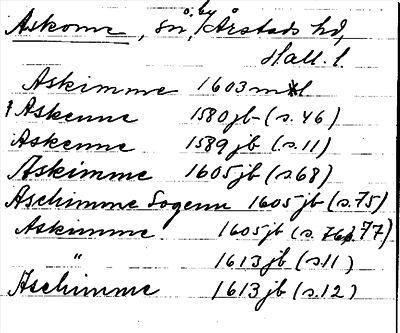 Askome, sn o. by, Årstads hd,
Hall. l.
Askimme 1603 ml
Askenne 1580 jb (s. 46)
Askenne 1589 jb (s. 11)
Askimme 1605 jb (s. 68)
Aschimme Sogenn 1605 jb (s. 75)
Askimme 1605 jb (s. 76, 77)
" 1613 jb (s. 11)
Aschimme 1613 jb (s. 12)